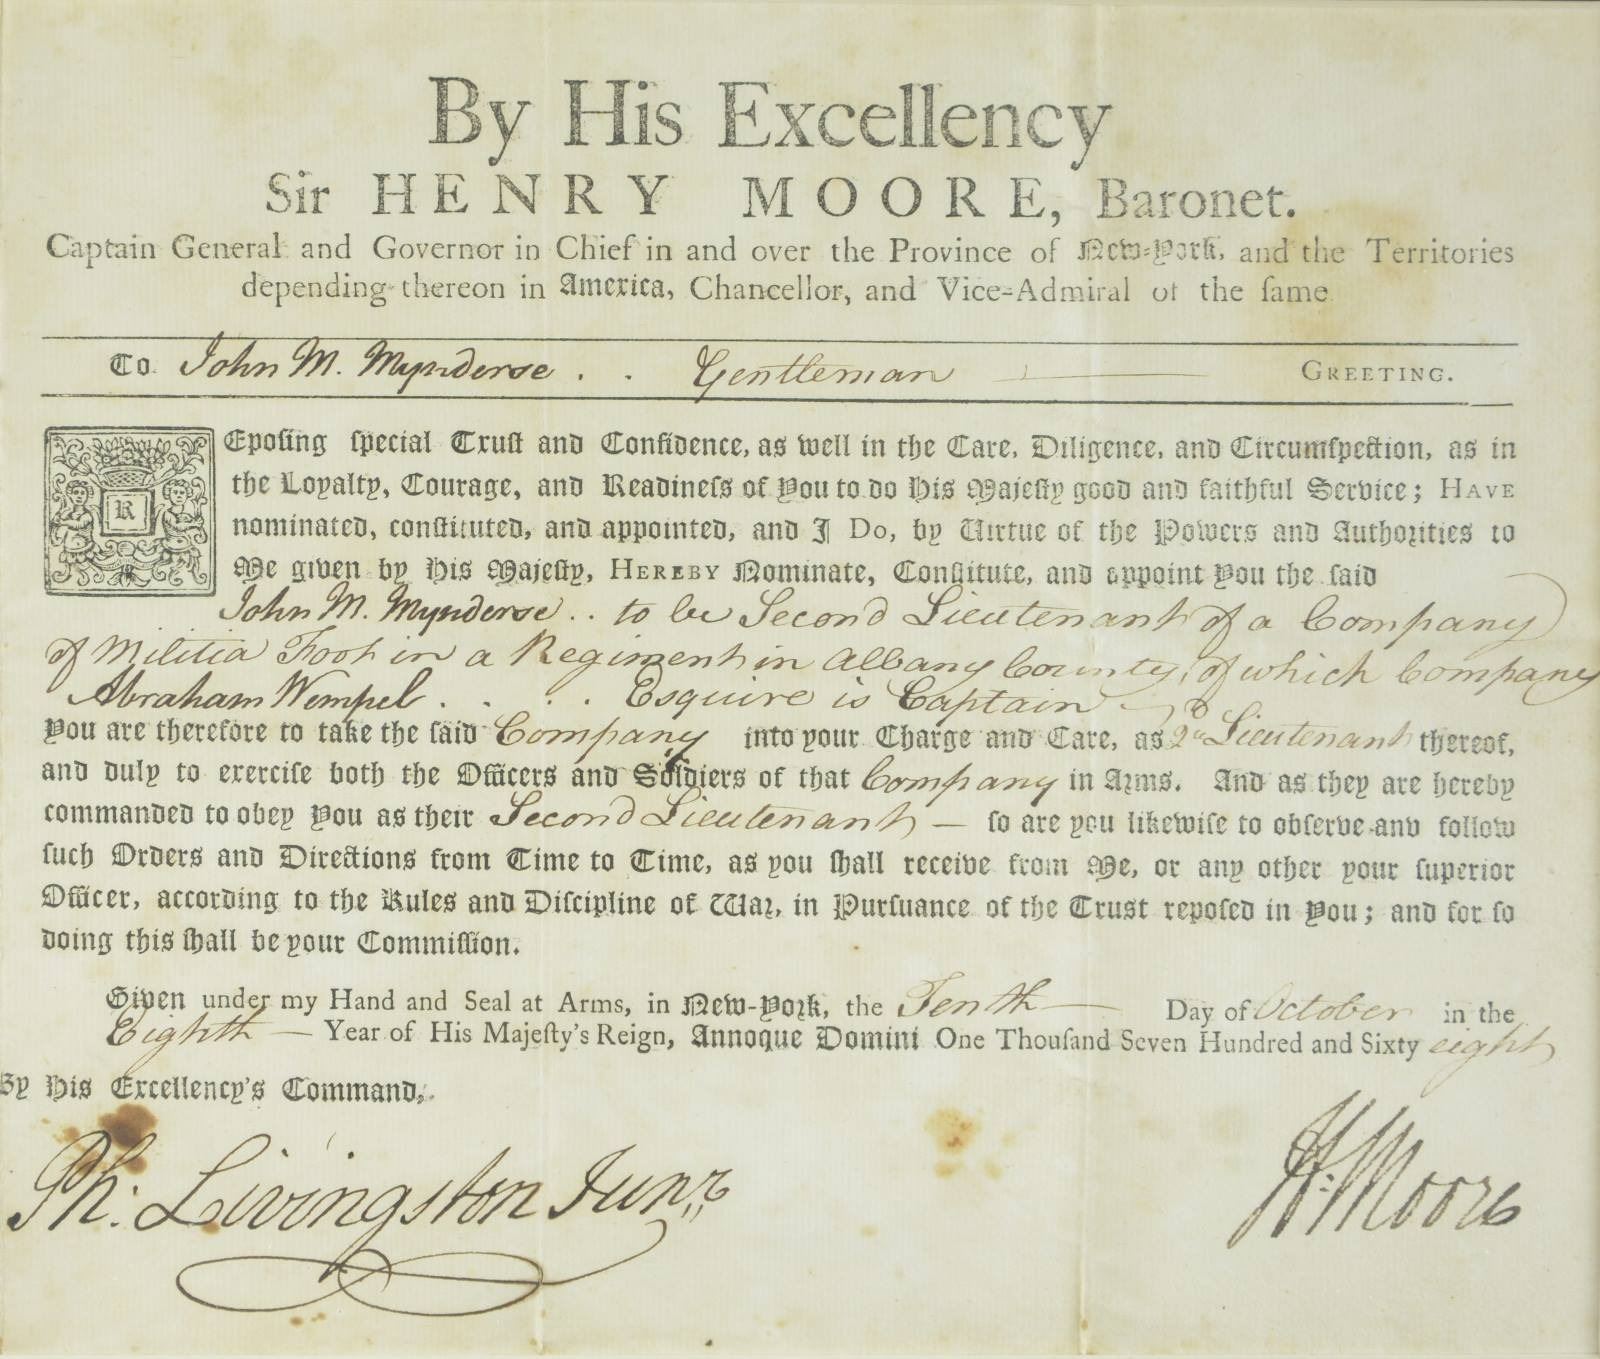 By His Excellency
Sir HENRY MOORE, Baronet.
Captain General and Governor in Chief in and over the Province of New-York, and the Territories
depending thereon in America, Chancellor, and Vice-Admiral of the ſame
To John M. Mynderse . . Gentleman — GREETING.
REpoſing ſpecial Truſt and Confidence, as well in the Care, Diligence, and Circumſpection, as in
the Loyalty, Courage, and Readineſs of You to do His Majeſty good and faithful Service; HAVE
nominated, conſtituted, and appointed, and I Do, by Virtue of the Powers and Authorities to
Me given by His Majeſty, HEREBY Nominate, Conſtitute, and appoint You the ſaid
John M. Mynderse . . to be Second Lieutenant of a Company
of Militia Foot in a Regiment in Albany County, of which Company
Abraham Wempel . . . . Esquire is Captain
You are therefore to take the ſaid Company into your Charge and Care, as 2d Lieutenant thereof,
and duly to exerciſe both the Officers and Soldiers of that Company in Arms. And as they are hereby
commanded to obey You as their Second Lieutenant — ſo are you likewiſe to obſerve and follow
ſuch Orders and Directions from Time to Time, as you ſhall receive from Me, or any other your ſuperior
Officer, according to the Rules and Diſcipline of War, in Purſuance of the Trust repoſed in You; and for ſo
doing this ſhall be your Commiſſion.
Given under my Hand and Seal at Arms, in New-York, the Tenth — Day of October in the
Eighth — Year of His Majeſty's Reign, Annoque Domini One Thouſand Seven Hundred and Sixty eight
By His Excellency's Command,
Ph: Livingston Junr
H: Moore